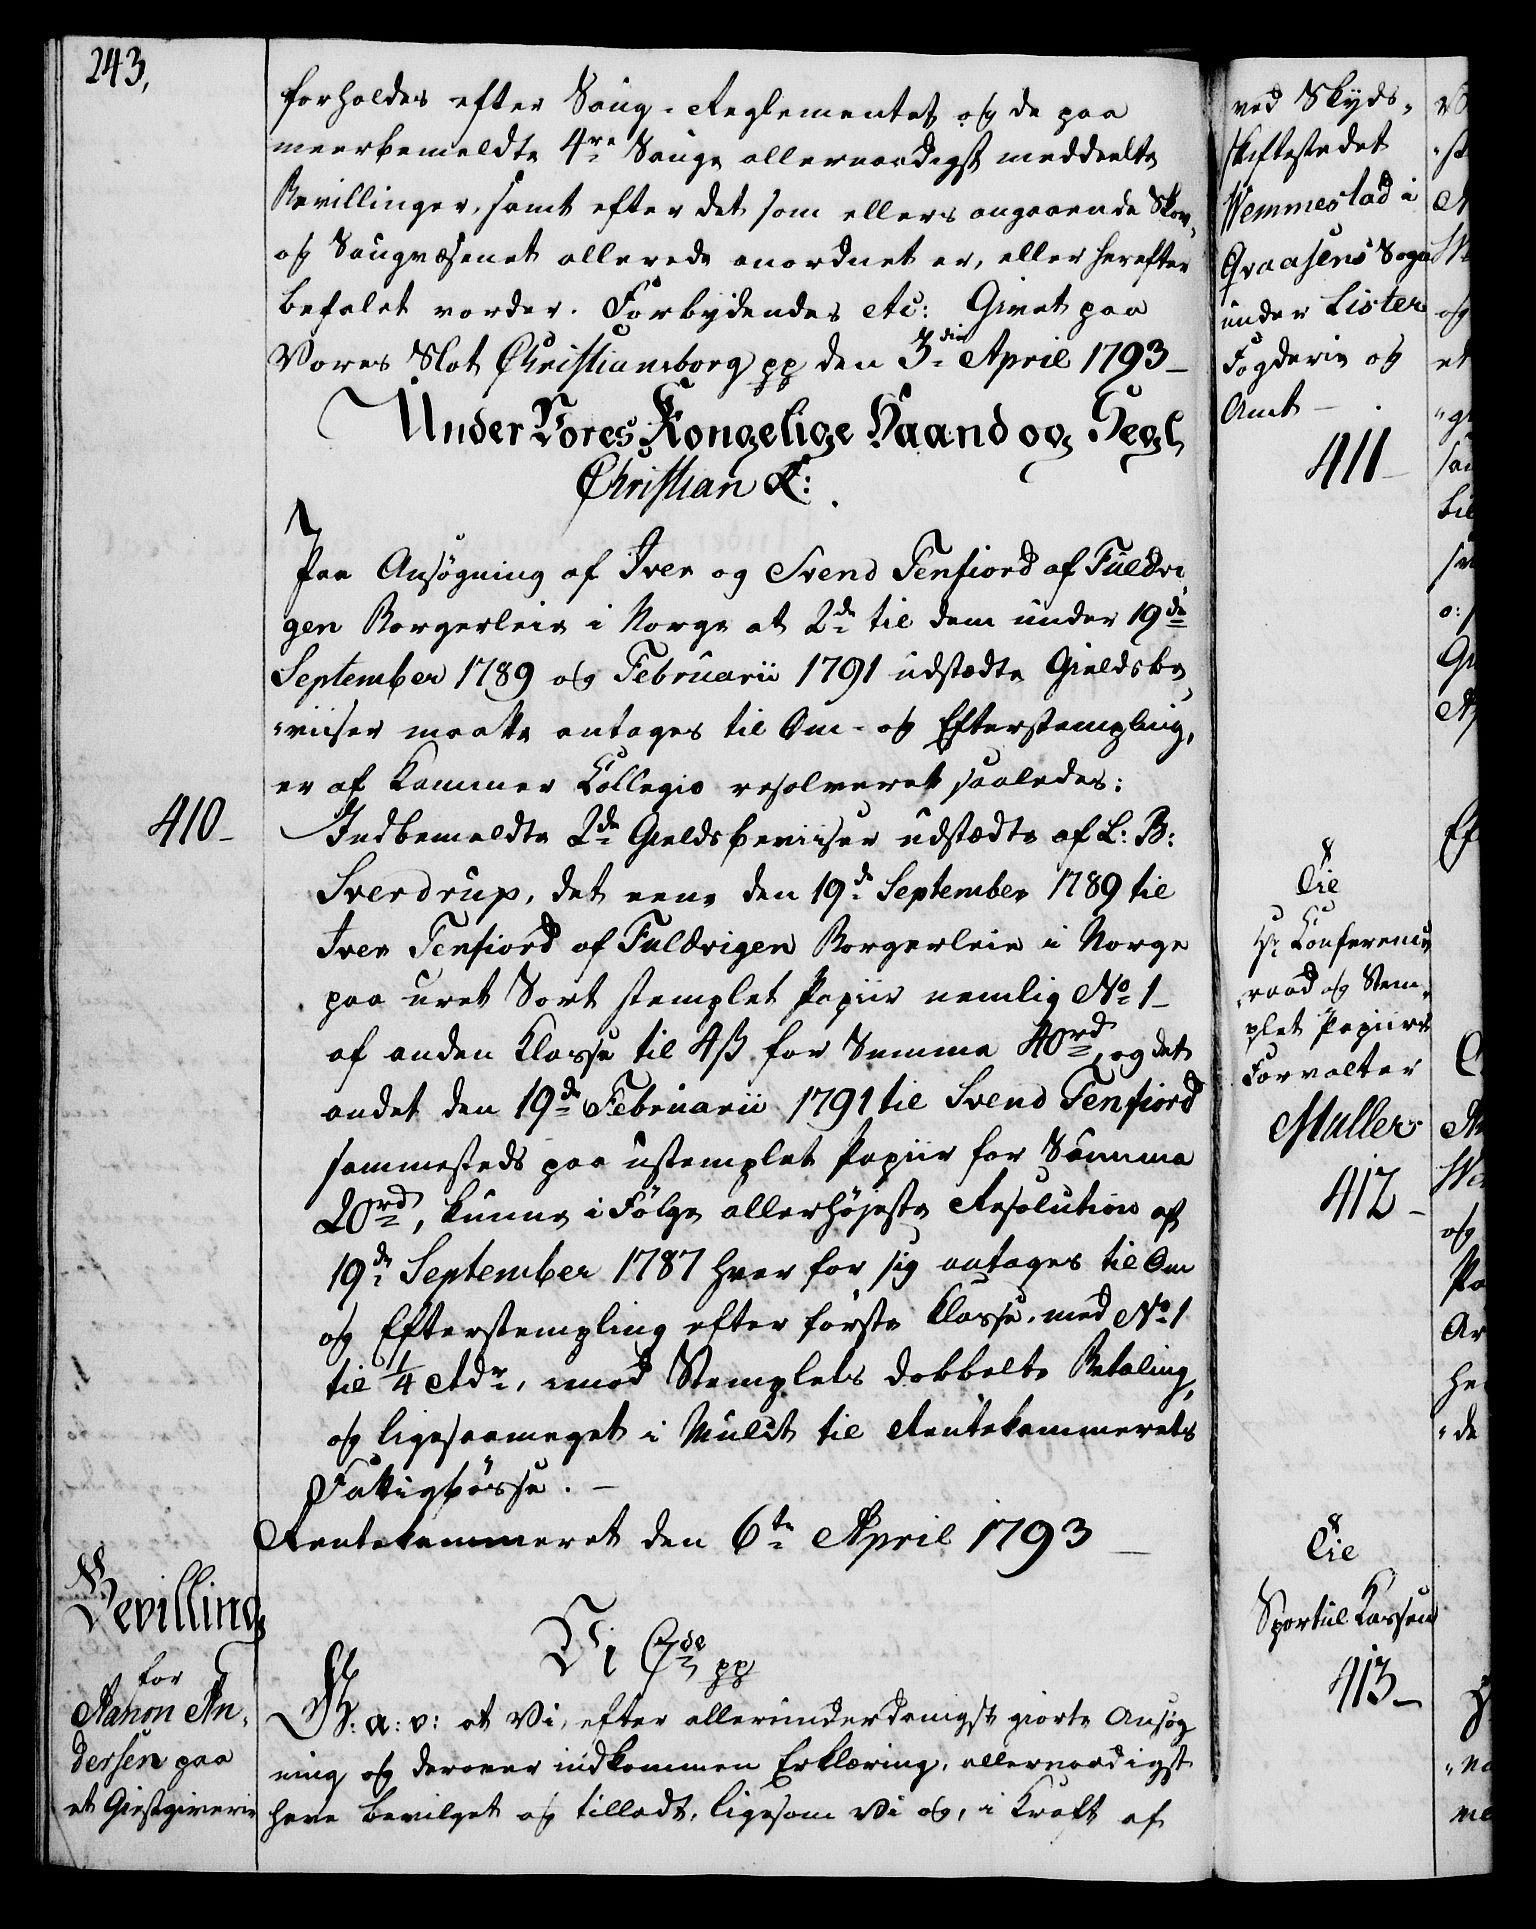 243,
forholdes efter Saug-Reglementet og de paa
meerbemeldte 4re Sauge allernaadigst meddeelte
Bevillinger, samt efter det som ellers angaaende Skov-
og Saugvæsenet allerede anordnet er, eller herefter
befalet vorder. Forbydendes etc: Givet paa
Vores Slot Christiansborg pp den 3die April 1793 –
Under Vores Kongelige Haand og Segl
Christian R:
Paa Ansøgning af Iver og Svend Tenfiord af Fuldvi
gen Borgerleie i Norge at 2de til dem under 19de
September 1789 og Februarii 1791 udstædte Gieldsbe
„viiser maatte antages til Om- og Efterstempling,
er af Kammer Collegio resolveret saaledes:
410 –
Indbemeldte 2de Gieldsbeviiser udstædte af L: B:
Sverdrup, det eene den 19de September 1789 til
Iver Tenfiord af Fuldvigen Borgerleie i Norge
paa uret Sort stemplet Papiir nemlig No 1 –
af anden Klasse til 4ß for Summa 40rd, og det
andet den 19de Februarii 1791 til Svend Tenfiord
sammesteds paa ustemplet Papiir for Summa
20rd, kunne i Følge allerhøjeste Resolution af
19de September 1787 hver for sig antages til Om
og Efterstempling efter første Klasse, med No 1
til 1/4 Rdr, imod Stemplets dobbelte Betaling,
og ligesaameget i Mulct til Rentekammerets
Fattigbøsse. –
Rentekammeret den 6te April 1793 –
Bevilling
for
Aanon An„
dersen paa
et Giestgiverie
Vi C7de pp
G: a: v: at Vi, efter allerunderdanigst giorte Ansøg
ning og derover indkommen Erklæring, allernaadigst
have bevilget og tilladt, ligesom Vi og, i Kraft af
ved Skyds„
skiftestedet
Vemmestad i
Qvaasens Sogn
under Lister
Fogderie og
Amt – .
411 –
Til
Hr Conferentz
raad og Stem„
plet Papiirs
Forvalter
Müller
412 –
Til
Sportul Kassen
413 –